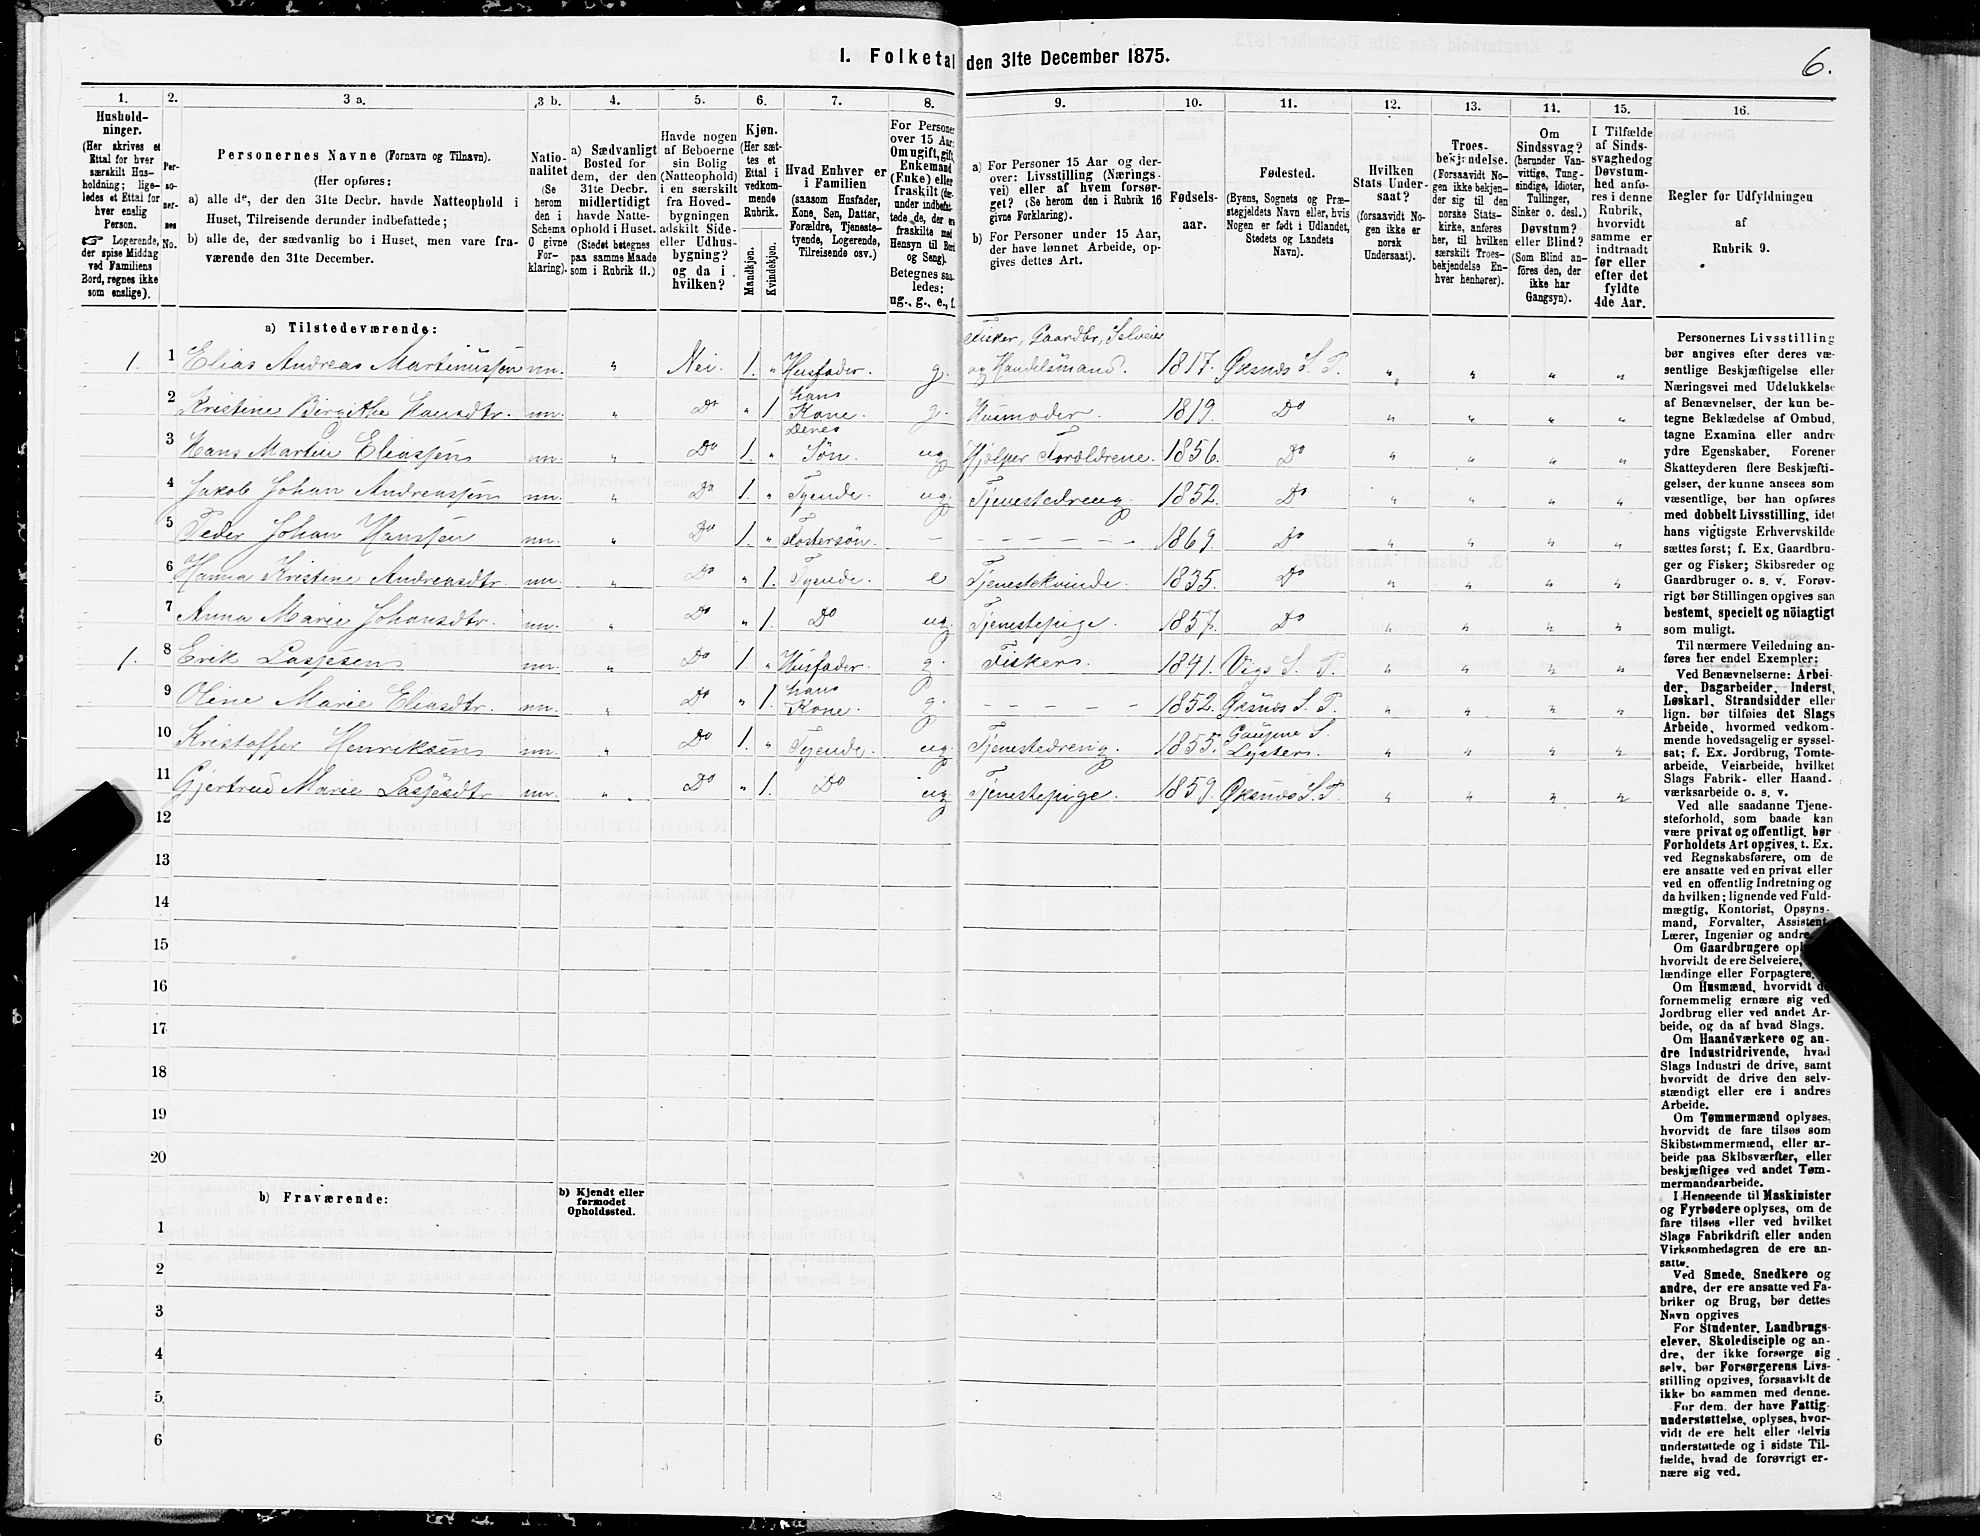 I. Folketal den 31te December 1875.
6.
1.
Hushold-
ninger.
(Her skrives et
Ettal for hver
særskilt Hus-
holdning; lige-
ledes et Ettal for
hver enslig
Person.
Logerende,
der spise Middag
ved Familiens
Bord, regnes ikke
som enslige).
2.
Per-
so-
ner-
nes
No.
3 a.
Personernes Navne (Fornavn og Tilnavn).
(Her opføres:
a) alle de, der den 31te Decbr. havde Natteophold i
Huset, Tilreisende derunder indbefattede;
b) alle de, der sædvanlig bo i Huset, men vare fra-
værende den 31te December.
3 b.
Natio-
nalitet
(Se
herom
den i
Schema
O givne
For-
klaring).
4.
a) Sædvanligt
Bosted for
dem, der den
31te Decbr.
midlertidigt
havde Natte-
ophold i Huset.
(Stedet betegnes
paa samme Maade
som i Rubrik 11.)
5.
Havde nogen
af Beboerne
sin Bolig
(Natteophold)
i en særskilt
fra Hoved-
bygningen
adskilt Side-
eller Udhus-
bygning?
og da i
hvilken?
6.
Kjøn.
(Her sæt-
tes et
Ettal i
vedkom-
mende
Rubrik.
Mandkjøn.
Kvindekjøn.
7.
Hvad Enhver er
i Familien
(saasom Husfader,
Kone, Søn, Datter,
Forældre, Tjeneste-
tyende, Logerende,
Tilreisende osv.)
8.
For Personer
over 15 Aar:
Om ugift, gift,
Enkemand
(Enke) eller
fraskilt (der-
under indbefat-
tede de, der ere
fraskilte med
Hensyn til Bord
og Seng).
Betegnes saa-
ledes:
ug., g., e., f.
9.
a) For Personer 15 Aar og der-
over: Livsstilling (Nærings-
vei) eller af hvem forsør-
get? (Se herom den i Rubrik 16
givne Forklaring).
b) For Personer under 15 Aar,
der have lønnet Arbeide, op-
gives dettes Art.
10.
Fødsels-
aar.
11.
Fødested.
(Byens, Sognets og Præ-
stegjeldets Navn eller, hvis
Nogen er født i Udlandet,
Stedets og Landets
Navn).
12.
Hvilken
Stats Under-
saat?
(forsaavidt No-
gen ikke er
norsk
Undersaat).
13.
Troes-
bekjendelse.
(Forsaavidt No-
gen ikke bekjen-
der sig til den
norske Stats-
kirke, anføres
her, til hvilken
særskilt Troes-
bekjendelse En-
hver henhører).
14.
Om
Sindssvag?
(herunder Van-
vittige, Tung-
sindige, Idioter,
Tullinger,
Sinker o. desl.)
Døvstum?
eller Blind?
(Som Blind an-
føres den, der
ikke har
Gangsyn).
15.
I Tilfælde
af Sinds-
svaghed og
Døvstum-
hed anfø-
res i denne
Rubrik,
hvorvidt
samme er
indtraadt
før eller
efter det
fyldte
4de Aar.
16.
Regler for Udfyldningen
af
Rubrik 9.
a) Tilstedeværende:
1. 1 Elias Andreas Martinussen nn. „ Nei. 1. „ Husfader. g. Fisker, Gaardbr, Selveier og Handelsmand. 1817. Øksnæs S. P. „ „ „ „
2 Kristine Birgithe Hansdtr. nn. „ Do „ 1 hans Kone. g. Husmoder. 1819. Do „ „ „ „
3 Hans Martin Eliassen nn. „ Do 1. „ Deres Søn. ug. Hjælper Forældrene. 1856. Do „ „ „ „
4 Jakob Johan Andreassen nn. „ Do 1. „ Tyende. ug. Tjenestedreng. 1852. Do „ „ „ „
5 Peder Johan Hanssen nn. „ Do 1. „ Fostersøn. – – – – – – 1869. Do „ „ „ „
6 Hanna Kristine Andreasdtr. nn. „ Do „ 1. Tyende. e Tjenestekvinde. 1835. Do „ „ „ „
7 Anna Marie Johansdtr. nn. „ Do „ 1. Do ug. Tjenestepige. 1857. Do „ „ „ „
1. 8 Erik nn. „ Do 1. „ Husfader. g. Fisker. 1841. S. P. „ „ „ „
9 Oline Marie Eliasdtr. nn. „ Do „ 1. hans Kone. g. – – – – – 1852. Øksnæs S. P. „ „ „ „
10 Kristoffer Henriksen nn. „ Do 1. „ Tyende. ug. Tjenestedreng. 1855. Gaupne S. Lyster. „ „ „ „
11 Gjertrud Marie nn. „ Do „ 1. Do ug Tjenestepige. 1859. Øksnæs S. P. „ „ „ „
12
13
14
15
16
17
18
19
20
b) Fraværende:
b) Kjendt eller
formodet
Opholdssted.
1
2
3
4
5
6
Personernes Livsstilling
bør angives efter deres væ-
sentlige Beskjæftigelse eller
Næringsvei med Udelukkelse
af Benævnelser, der kun be-
tegne Beklædelse af Ombud,
tagne Examina eller andre
ydre Egenskaber. Forener
Skatteyderen flere Beskjæfti-
gelser, der kunne ansees som
væsentlige, bør han opføres
med dobbelt Livsstilling, idet
hans vigtigste Erhvervskilde
sættes først; f. Ex. Gaardbru-
ger og Fisker; Skibsreder og
Gaardbruger o. s. v. Forøv-
rigt bør Stillingen opgives saa
bestemt, specielt og nöiagtigt
som muligt.
Til nærmere Veiledning an-
føres her endel Exempler:
Ved Benævnelserne: Arbei-
der, Dagarbeider, Inderst,
Løskarl, Strandsidder eller
lign. bør tilføies det Slags
Arbeide, hvormed vedkom-
mende hovedsagelig er syssel-
sat; f. Ex. Jordbrug, Tomte-
arbeide, Veiarbeide, hvilket
Slags Fabrik- eller Haand-
værksarbeide o. s. v.
Ved alle saadanne Tjene-
steforhold, som baade kan
være privat og offentligt, bør
Forholdets Art opgives, t. Ex.
ved Regnskabsførere, om de
ere ansatte ved en privat eller
ved en offentlig Indretning og
da hvilken; lignende ved Fuld-
mægtig, Kontorist, Opsyns-
mand, Forvalter, Assistent,
Lærer, Ingeniør og andre
Om Gaardbrugere
hvorvidt de ere Selveiere,
lændinge eller Forpagtere.
Om Husmænd, hvorvidt de
fornemmelig ernære sig ved
Jordbrug eller ved andet Ar-
beide, og da af hvad Slags.
Om Haandværkere og an-
dre Industridrivende, hvad
Slags Industri de drive, samt
hvorvidt de drive den selv-
stændigt eller ere i andres
Arbeide.
Om Tømmermænd oplyses,
hvorvidt de fare tilsøs som
Skibstømmermænd, eller ar-
beide paa Skibsværfter, eller
beskjæftiges ved andet Tøm-
mermandsarbeide.
I Henseende til Maskinister
og Fyrbødere oplyses, om de
fare tilsøs eller ved hvilket
Slags Fabrikdrift eller anden
Virksomhedsgren de ere an-
satte.
Ved Smede, Snedkere og
andre, der ere ansatte ved Fa-
briker og Brug, bør dettes
Navn opgives
For Studenter, Landbrugs-
elever, Skoledisciple og an-
dre, der ikke forsørge sig
selv, bør Forsørgerens Livs-
stilling opgives, forsaavidt de
ikke bo sammen med denne.
For dem, der have Fattig-
understøttelse, oplyses, hvor-
vidt de ere helt eller delvis
understøttede og i sidste Til-
fælde, hvad de forøvrigt er-
nære sig ved.